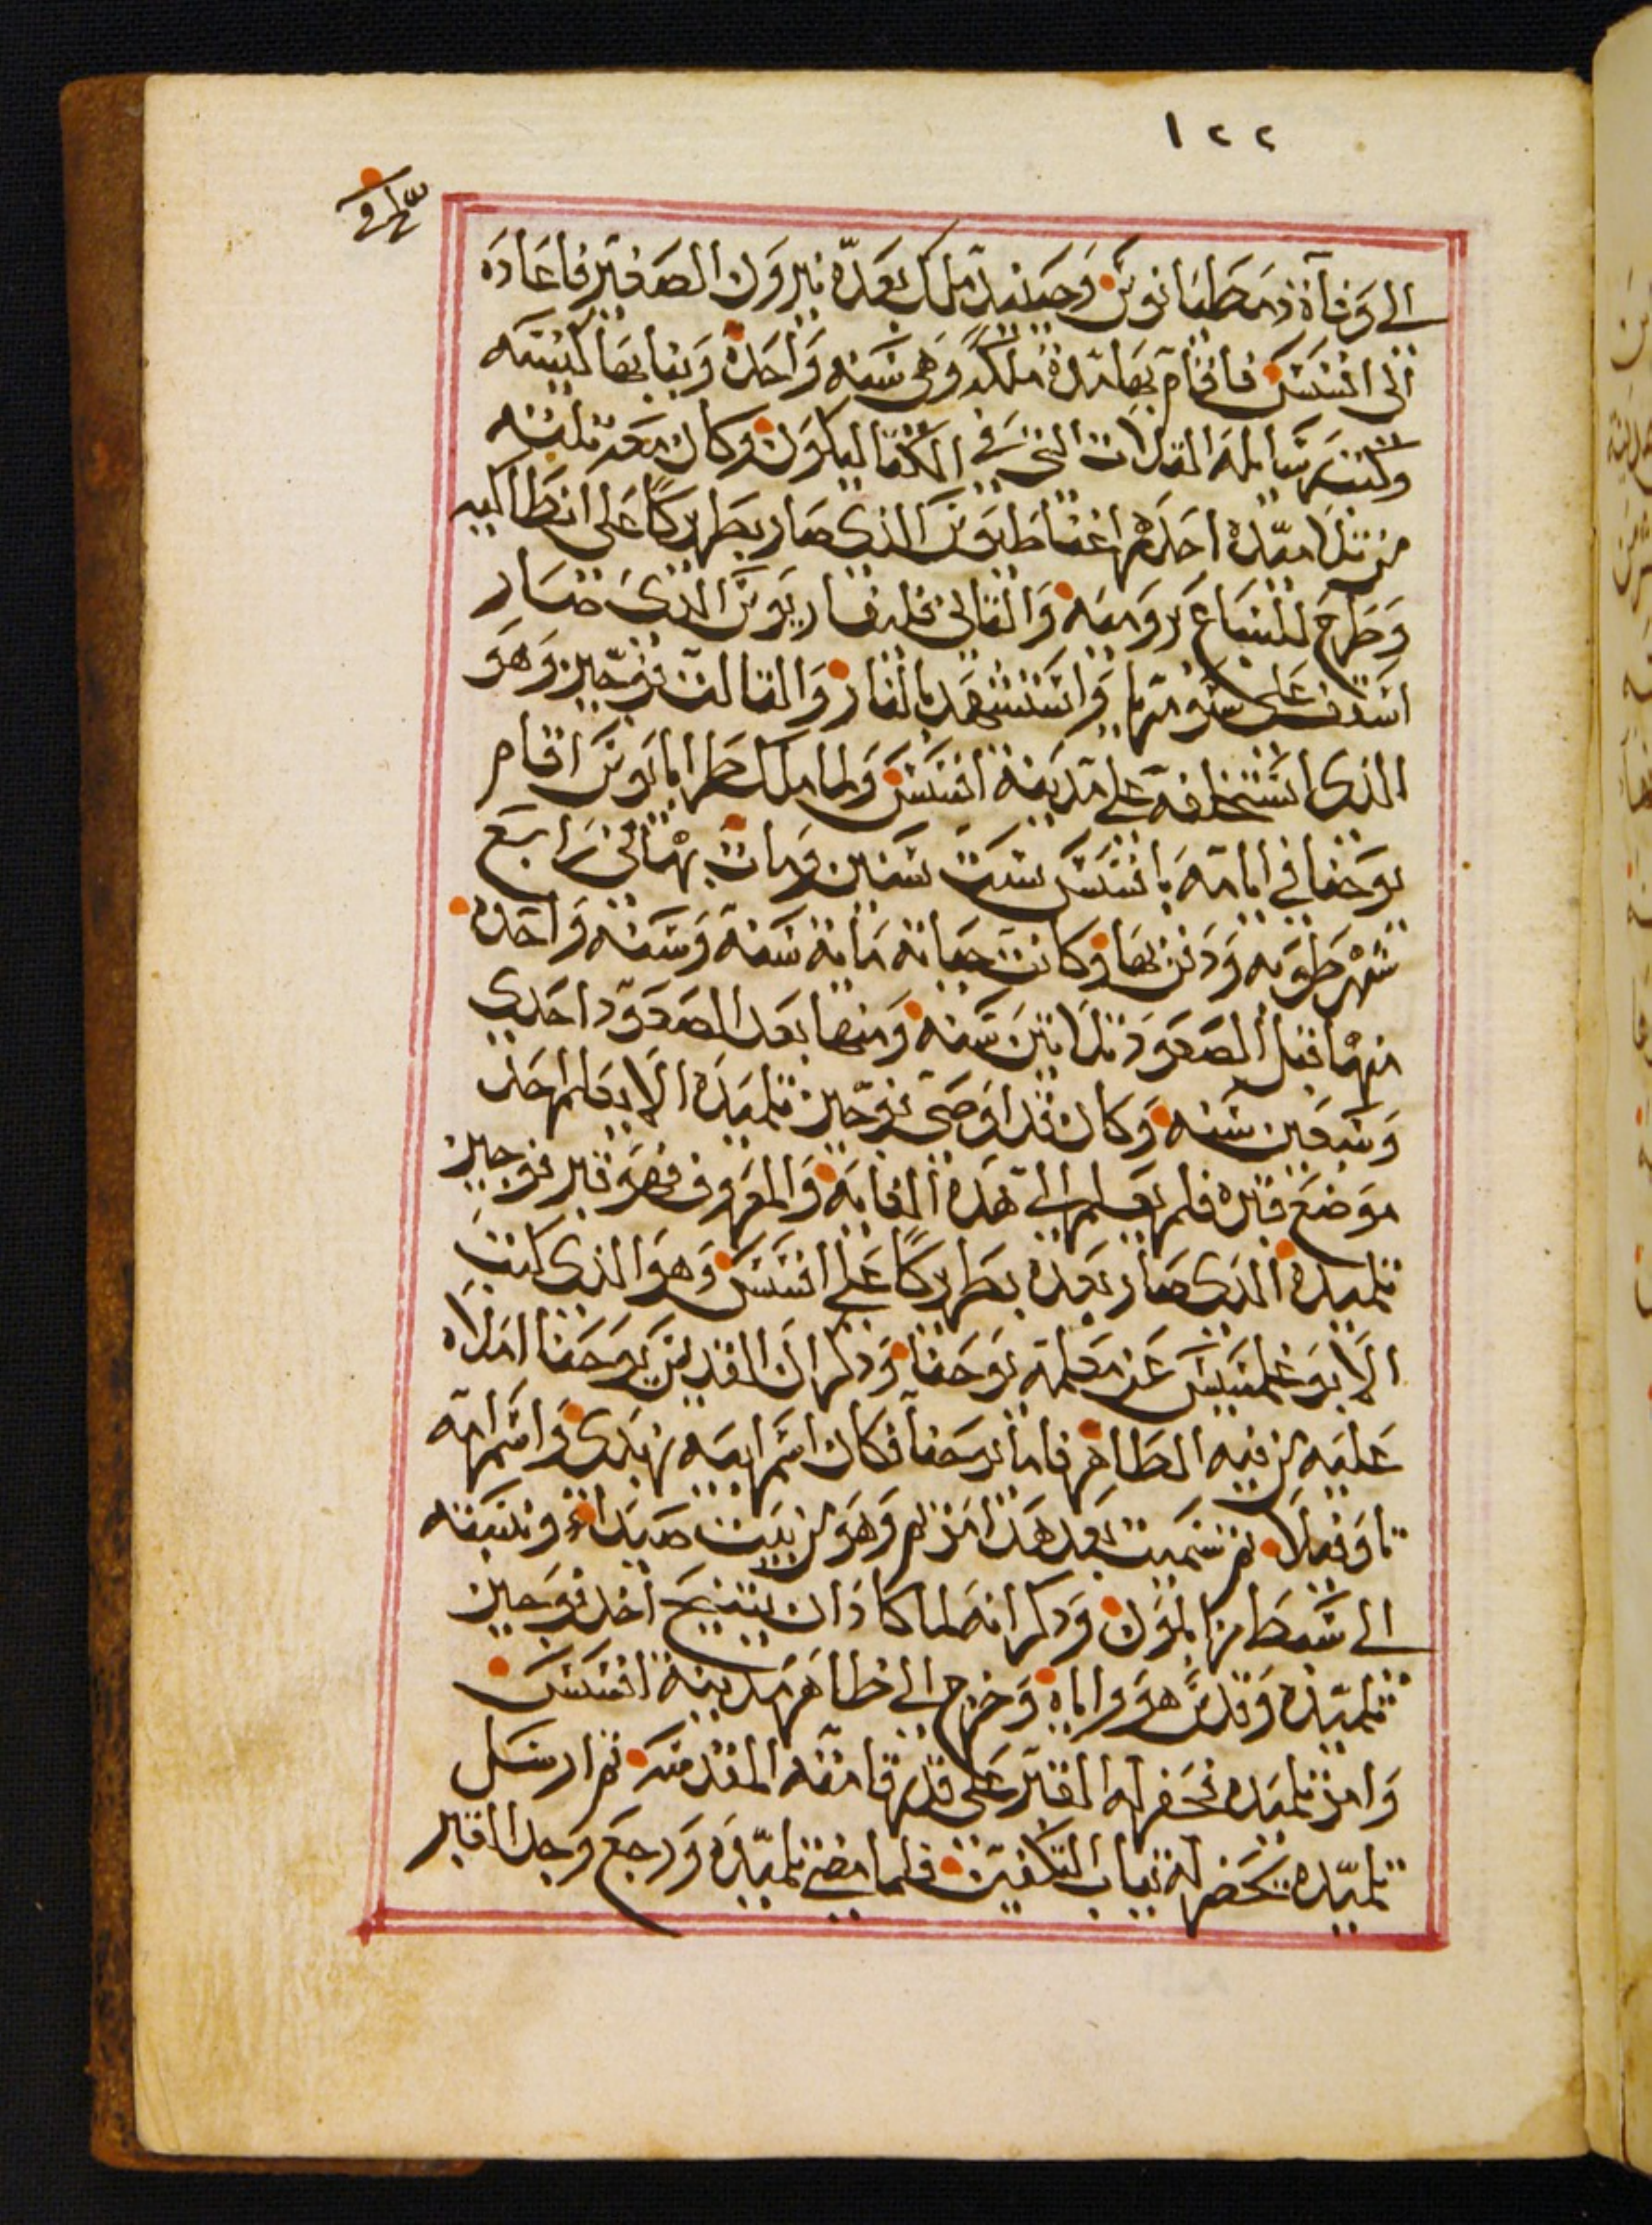 ١٢٢
الي وفاة دمطيانوس وحينيد ملك بعده نيرون الصغير فاعاده
الى افسس فاقام بها مدة ملكه وهى سنه واحده وبنا بها كنيسه
وكتب رسايله التلات التي في الكتاليكون وكان معه تلته
من تلاميده احدهم اغناطيوس الذي صار بطريركا على انطاكيه
وطرح للسباع بروميه والتانى بوليقاربوس الدى صار
اسقف على سومرنا واستشهد بالنار والتالت بوخيين وهو
الذى استخلفه على مدينة افسس ولما ملك طرايانوس اقام
يوحنا في ايامه بافسس ست سنين ومات بها في رابع
شهر طوبه ودفن بها وكانت حياته ماية سنه وسنه واحده
منها قبل الصعود تلاتين سنه ومنها بعد الصعود احدى
وسبعين سنه وكان قد اوصى بوخيين تلميده الا يعلم احد
موضع قبره فلم يعلم الي هده الغايه والمعروف فهو قبر بوخيين
تلميده الذى صار بعده بطريركا علي افسس وهو الذى كتب
الابوغلمسيس عن معلمه يوحنا ودكر ان القديس يوحنا املاه
عليه من فيه الطاهر فاما يوحنا فكان اسم ابيه زبدى واسم امه
تاوفيلا تم سميت بعد هدا مريم وهو من بيت صيدا ونسبته
الى سبط زابلون ودكر انه لما كاد ان يتنيح اخد بوخيين
تلميده وقدس هو واياه وخرج الى ظاهر مدينة افسس
وامر تلميده فحفر له القبر على قدر قامته المقدسه تم ارسل
تلميده يحضر له تياب التكفين فلما مضى تلميده ورجع وجد القبر